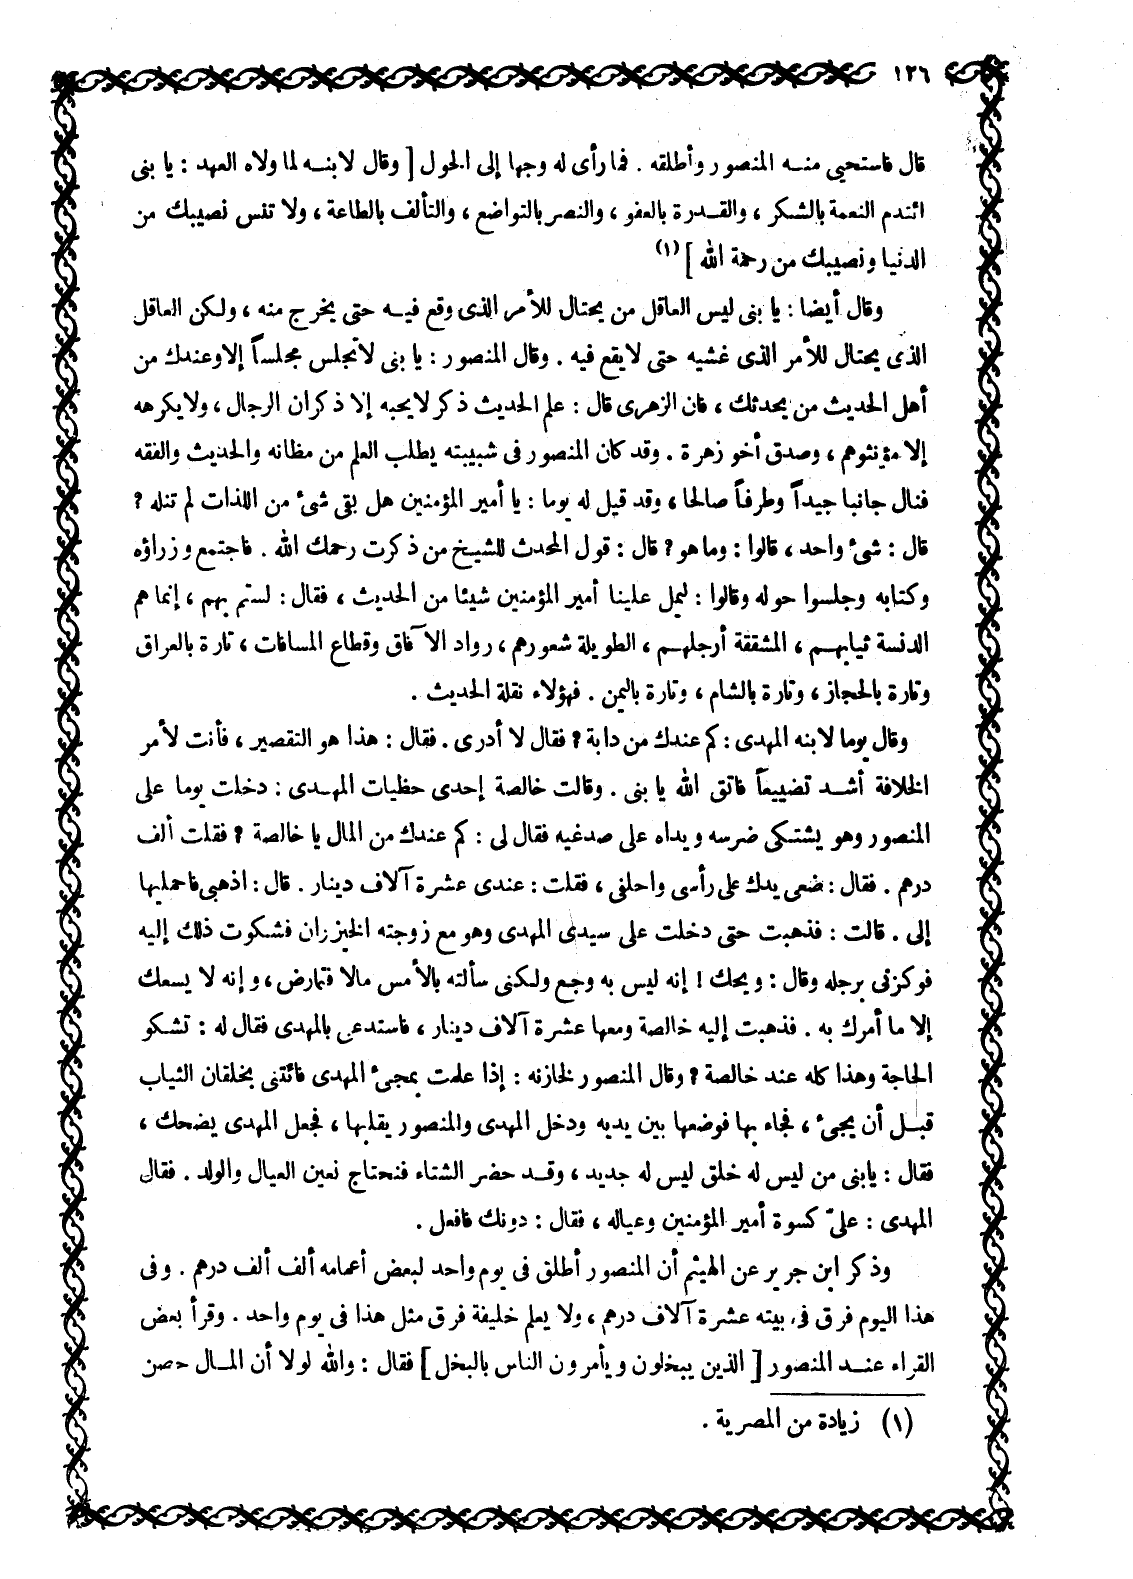 ١٢٦
قال فاستحيى منه المنصور وأطلقه . فما رأى له وجها إلى الحول [ وقال لابنه لما ولاه العهد : يا بنى
ائتدم النعمة بالشكر ، والقدرة بالعفو ، والنصر بالتواضع ، والتألف بالطاعة ، ولا تنس نصيبك من
الدنيا ونصيبك من رحمة الله ] (١)
وقال أيضا : يا بنى ليس العاقل من يحتال للأمر الذى وقع فيه حتى يخرج منه ، ولكن العاقل
الذى يحتال للأمر الذى غشيه حتى لا يقع فيه . وقال المنصور : يا بنى لا تجلس مجلساً إلا وعندك من
أهل الحديث من يحدثك ، فان الزهرى قال : علم الحديث ذكر لا يحبه إلا ذكران الرجال ، ولا يكرهه
إلا مؤنثوهم ، وصدق أخو زهرة . وقد كان المنصور فى شبيبته يطلب العلم من مظانه والحديث والفقه
فنال جانبا جيداً وطرفاً صالحا ، وقد قيل له يوما : يا أمير المؤمنين هل بقى شئ من اللذات لم تنله ؟
قال : شئ واحد ، قالوا : وما هو ؟ قال : قول المحدث للشيخ من ذكرت رحمك الله . فاجتمع وزراؤه
وكتابه وجلسوا حوله وقالوا : ليمل علينا أمير المؤمنين شيئا من الحديث ، فقال : لستم بهم ، إنما هم
الدنسة ثيابهم ، المشققة أرجلهم ، الطويلة شعورهم ، رواد الآفاق وقطاع المسافات ، تارة بالعراق
وتارة بالحجاز ، وتارة بالشام ، وتارة باليمن . فهؤلاء نقلة الحديث .
وقال يوما لابنه المهدى : كم عندك من دابة ؟ فقال لا أدرى . فقال : هذا هو التقصير ، فأنت لأمر
الخلافة أشد تضييعاً فاتق الله يا بنى . وقالت خالصة إحدى حظيات المهدى : دخلت يوما على
المنصور وهو يشتكى ضرسه ويداه على صدغيه فقال لى : كم عندك من المال يا خالصة ؟ فقلت ألف
درهم . فقال : ضعى يدك على رأسى واحلفى ، فقلت : عندى عشرة آلاف دينار . قال : اذهبى فاحمليها
إلى . قالت : فذهبت حتى دخلت على سيدى المهدى وهو مع زوجته الخيزران فشكوت ذلك إليه
فوكزنى برجله وقال : ويحك ! إنه ليس به وجع ولكنى سألته بالأمس مالا فتمارض ، وإنه لا يسعك
إلا ما أمرك به . فذهبت إليه خالصة ومعها عشرة آلاف دينار ، فاستدعى بالمهدى فقال له : تشكو
الحاجة وهذا كله عند خالصة ؟ وقال المنصور لخازنه : إذا علمت بمجئ المهدى فائتنى بخلقان الثياب
قبل أن يجئ ، فجاء بها فوضعها بين يديه ودخل المهدى والمنصور يقلبها ، فجعل المهدى يضحك ،
فقال : يابنى من ليس له خلق ليس له جديد ، وقد حضر الشتاء فنحتاج نعين العيال والولد . فقال
المهدى : علىّ كسوة أمير المؤمنين وعياله ، فقال : دونك فافعل .
وذكر ابن جرير عن الهيثم أن المنصور أطلق فى يوم واحد لبعض أعمامه ألف ألف درهم . وفى
هذا اليوم فرق فى بيته عشرة آلاف درهم ، ولا يعلم خليفة فرق مثل هذا فى يوم واحد . وقرأ بعض
القراء عند المنصور [ الذين يبخلون ويأمرون الناس بالبخل ] فقال : والله لولا أن المال حصن
(١) زيادة من المصرية .